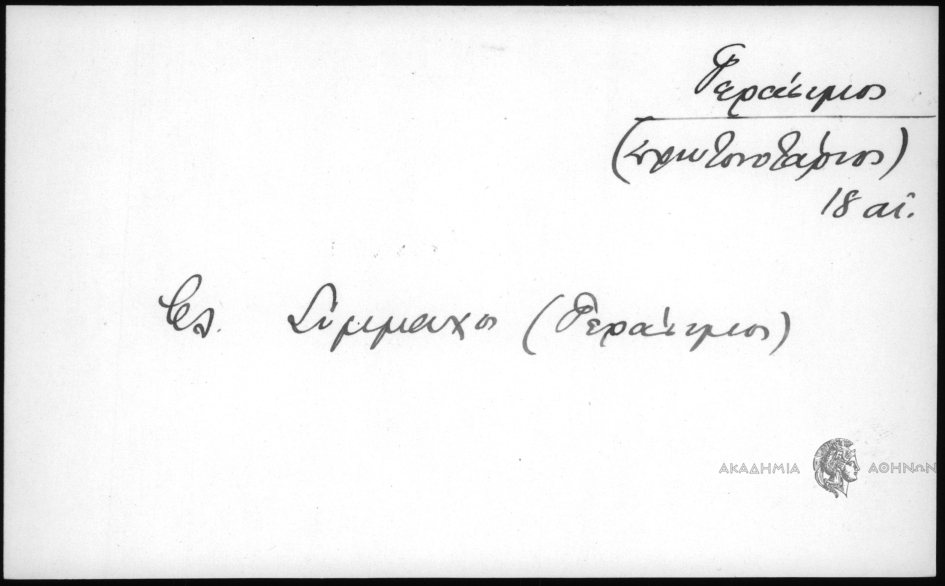 Γεράσιμος
(πρωτονοτάριος)
18 αἰ.
Βλ. Σύμμαχος (Γεράσιμος)
ΑΚΑΔΗΜΙΑ ΑΘΗΝΩΝ